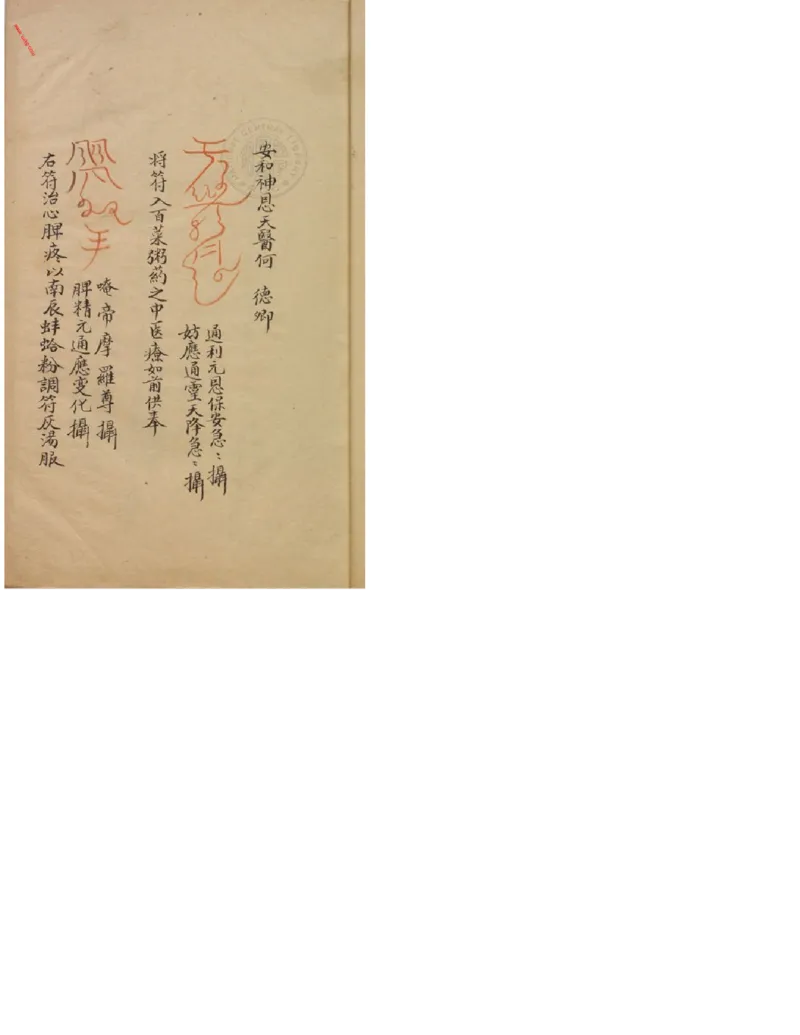 安和神恩天醫何 德卿
通利元恩保安急〻攝
妨應通靈天降急〻攝
将符入百菜粥药之中医療如前供奉
唵帝摩羅尊攝
脾精元通應变化攝
右符治心脾疼以南辰蚌蛤粉調符灰湯服